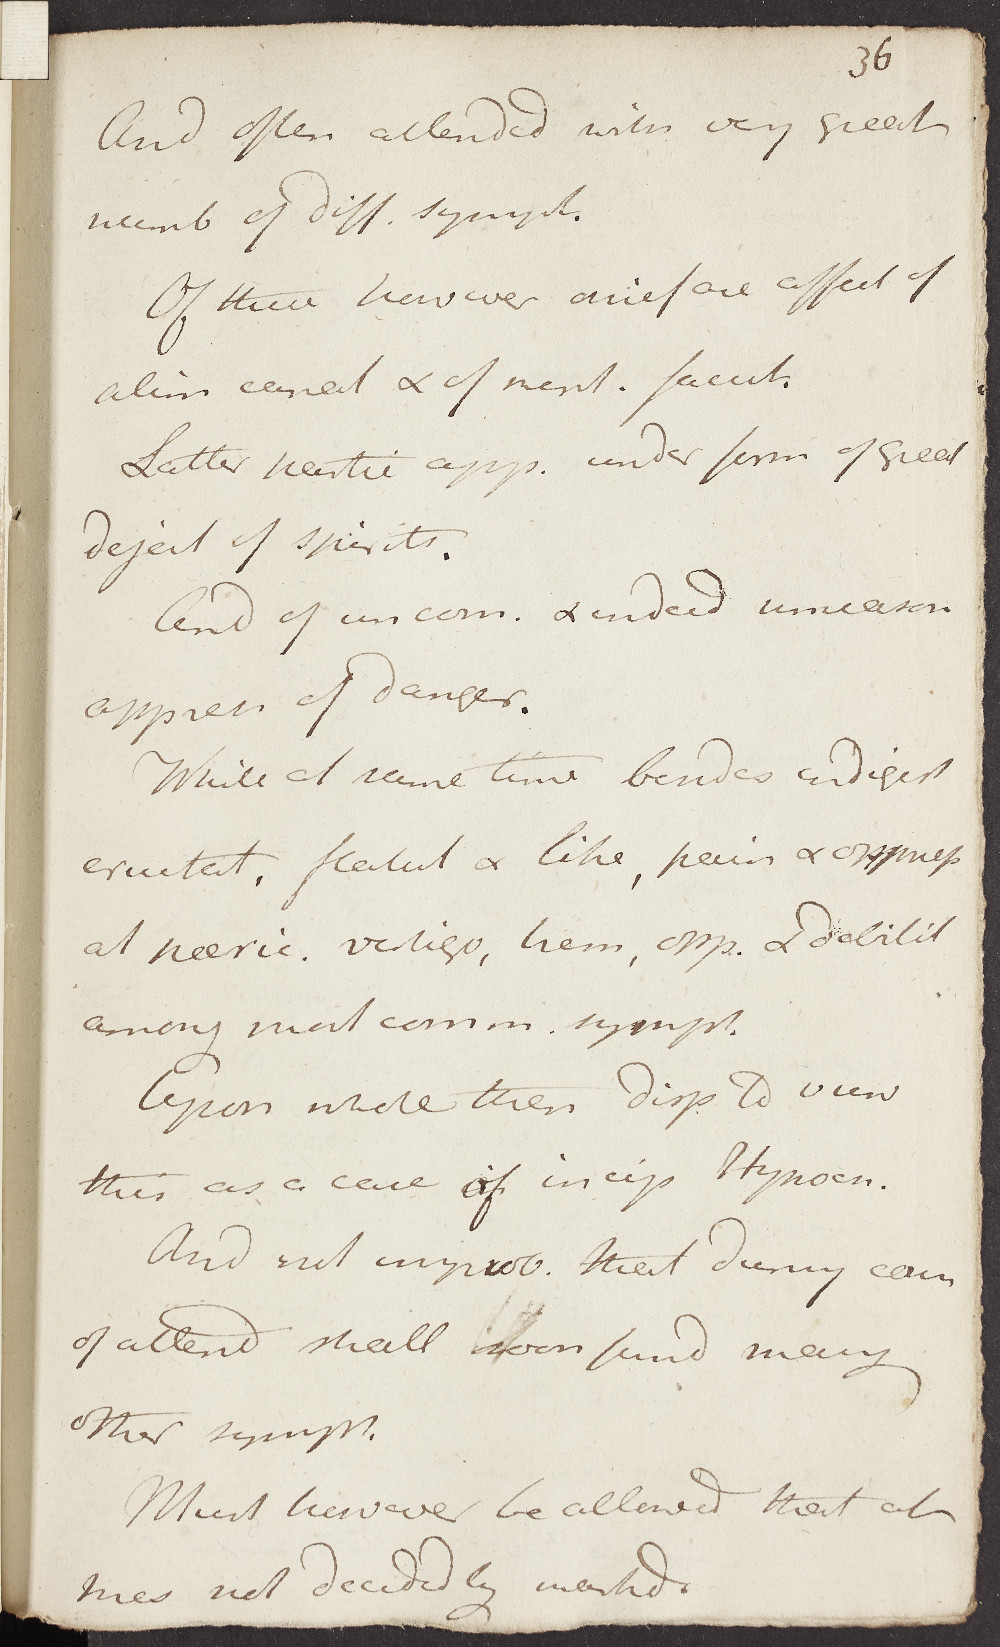 36
And often attended with very great
numb of diff. sympt.
Of these however chief are affect of
alim canal & of ment. facult.
Latter partic app. under form of great
deject of spirits.
And of uncom. & indeed unreason
appreh of danger.
While at same time besides indigest
eructat, flatul & like, pain &
at præcic. vertigo, opp. & debilit
among most comm. sympt.
Upon whole then disp to view
this as a case of incip Hypocn.
And not improb. that during cours
of attend shall soon find many
other sympt.
Must however be allowed that at
pres not decidedly marked.